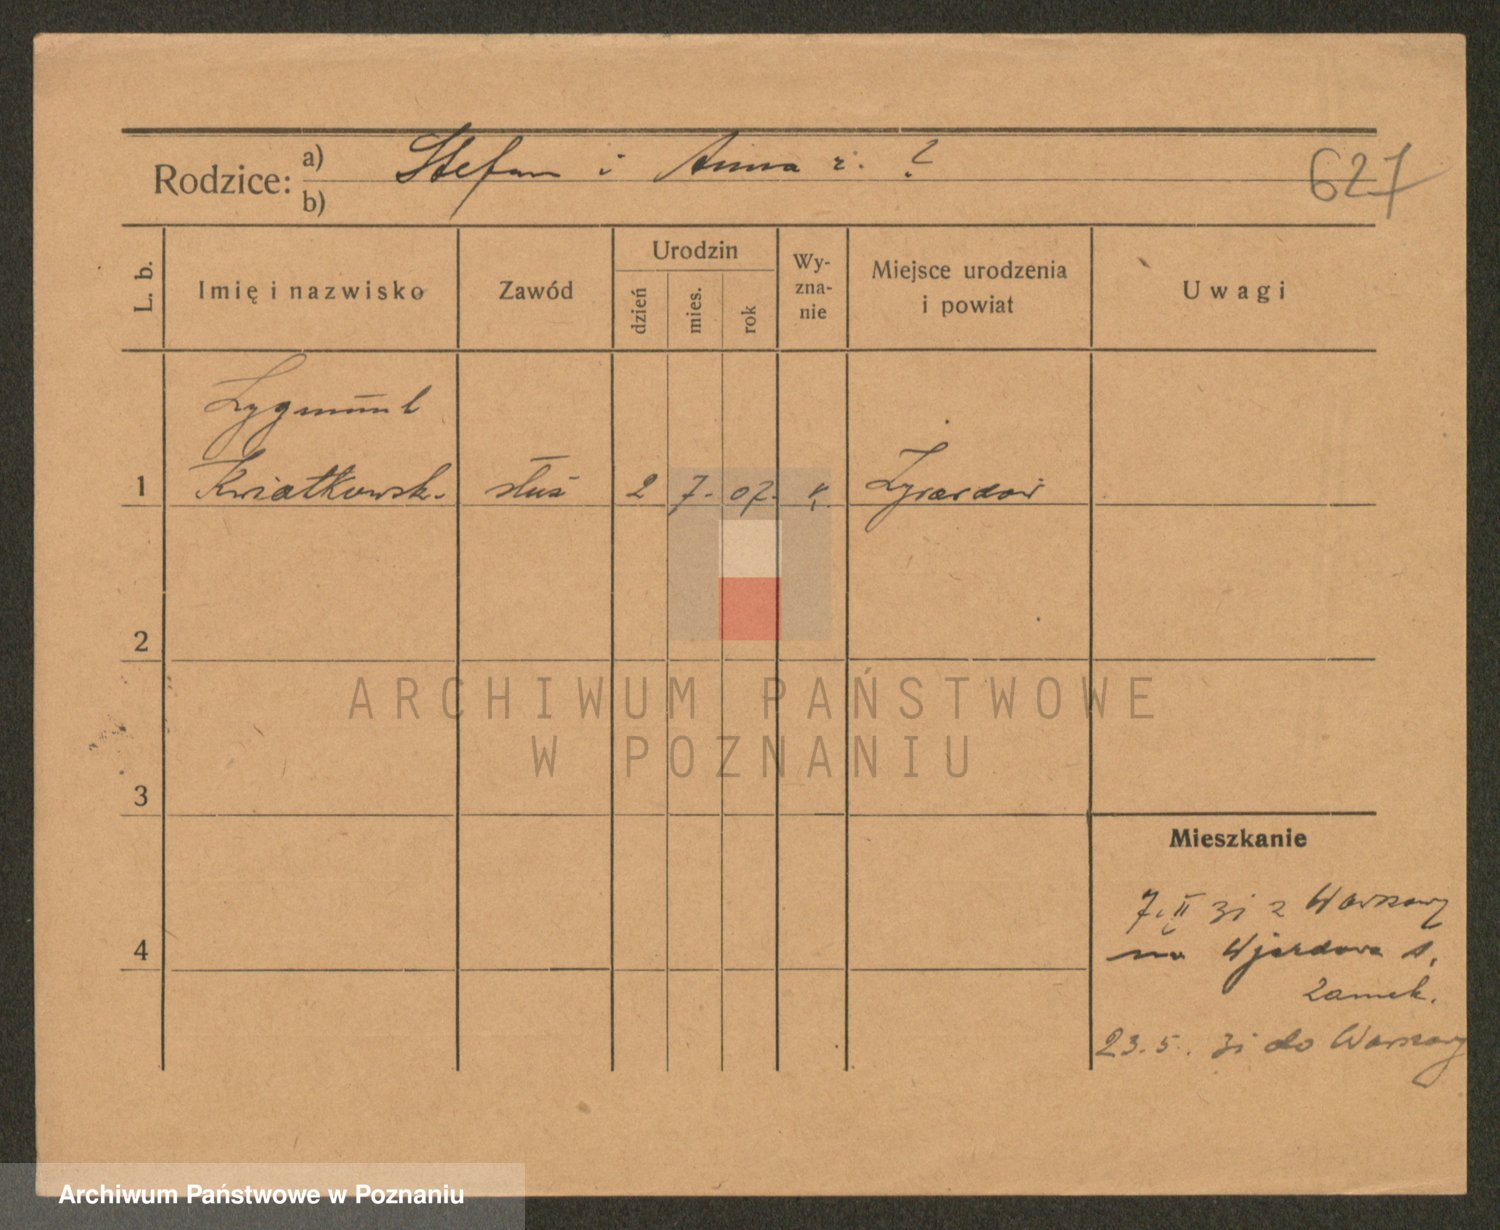 Rodzice: a) Stefan i Anna z. ?
b)
627
L. b.
Imię i nazwisko
Zawód
Urodzin
dzień
mies.
rok
Wy-
zna-
nie
Miejsce urodzenia
i powiat
Uwagi
Zygmunt
1 Kwiatkowsk. służ 2 7. 07. k. Żyrardów
2
ARCHIWUM PAŃSTWOWE
W POZNANIU
3
Mieszkanie
7. II 31 z Warszawy
4
na Wjazdowa 1.
Zamek.
23.5. 31 do Warszawy
Archiwum Państwowe w Poznaniu